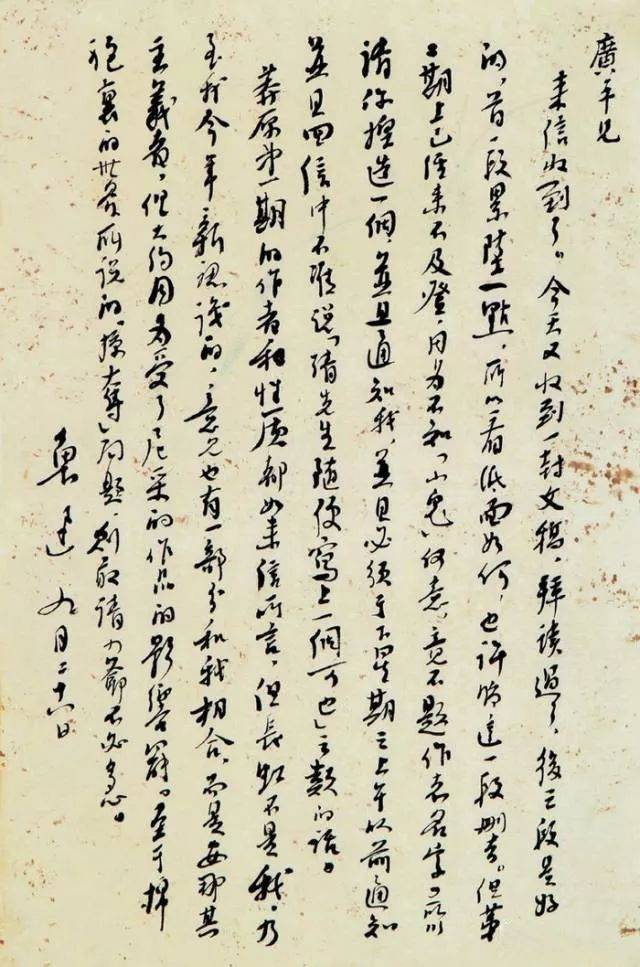 廣平兄
来信收到了。今天又收到一封文稿,拜讀過了,後三段是好
的,首一段累墜一點,所以看紙面如何,也許將這一段刪去。但第
二期上已經来不及登,因為不知「小鬼」何意,竟不題作者名字,所以
請你捏造一個,並且通知我,並且必須于下星期三上午以前通知
並且回信中不准說「請先生隨便寫上一個可也」之類的話。
莽原第一期的作者和性質都如来信所言,但長虹不是我,乃
是我今年新認識的,意見也有一部分和我相合,而是安那其
主義者,但大約因為受了尼采的作品的影響罷。至于棉
袍裏的世界所說的「掠奪」問題,則敢請少爺不必多心。
魯迅 九月二十六日